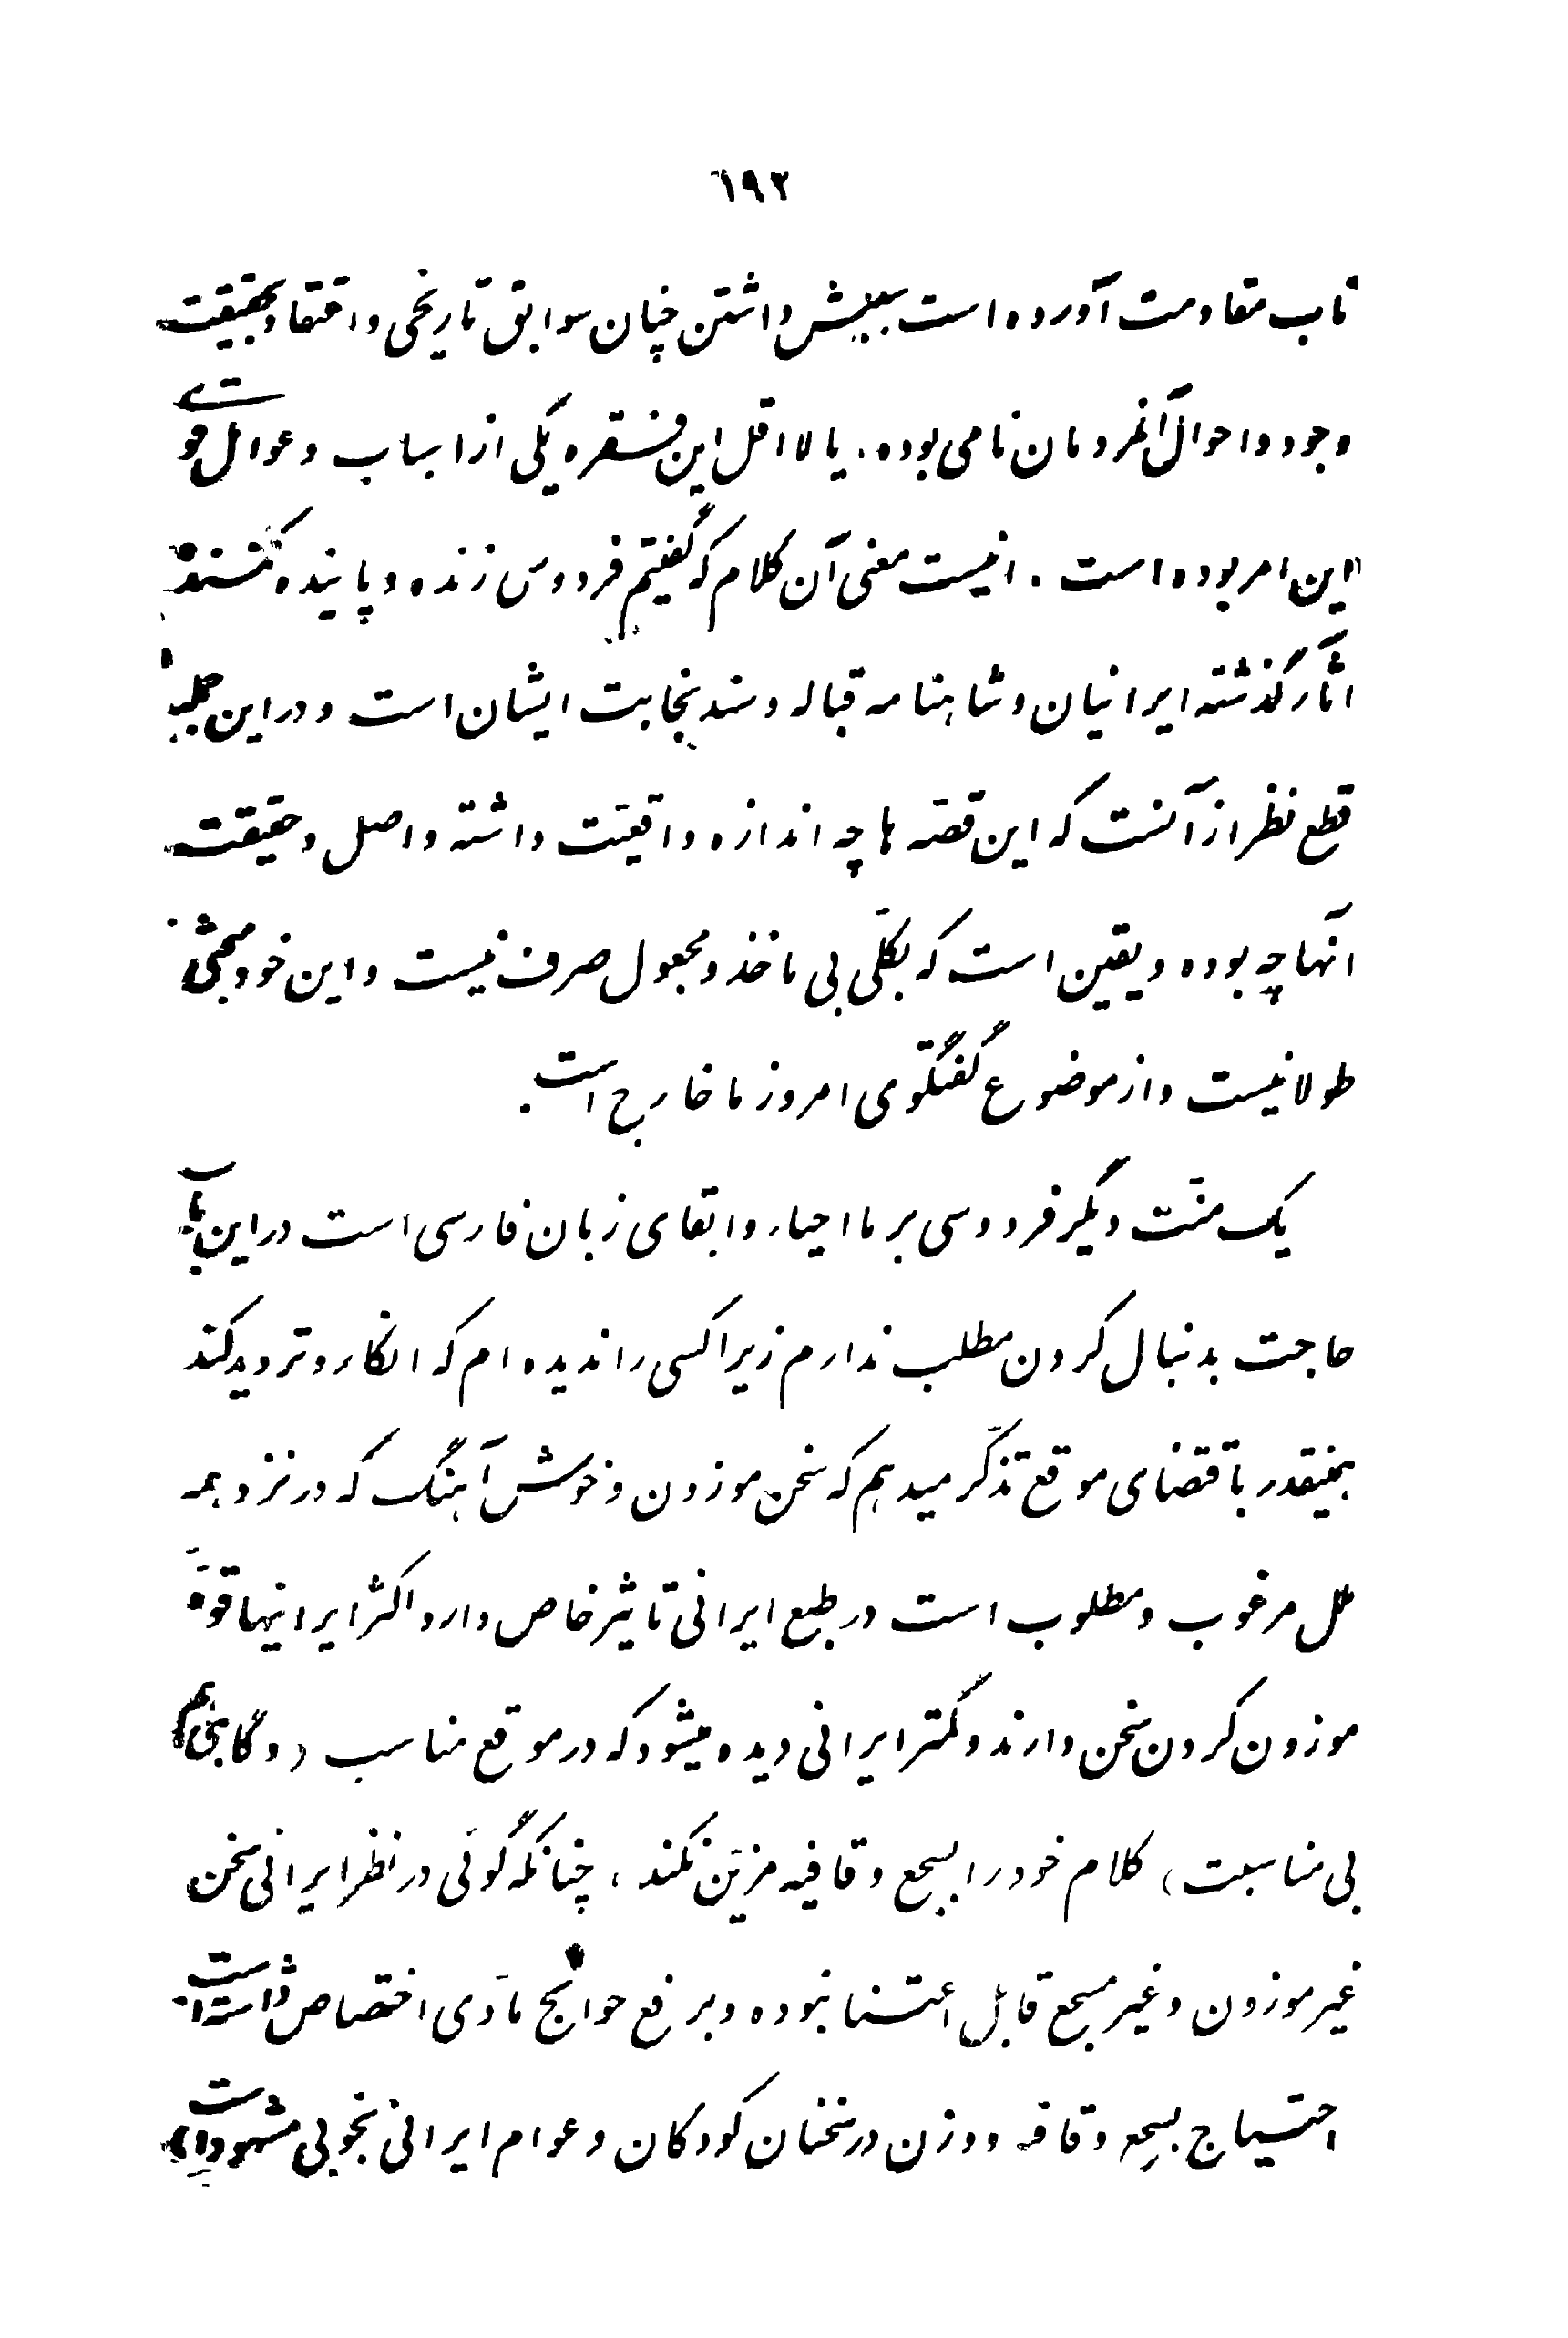 ٦٩٣
تاب مقاومت آورده است بسبب داشتن چنان سوابق تاریخی و اعتقاد بحقیقت
وجود و احوال آنمردمان نامی بوده، یا لااقل این فقره یکی از اسباب و عوامل قوی
این امر بوده است. اینست معنی آن کلام که گفتیم فردوسی زنده و پاینده کننده
آثار گذشته ایرانیان و شاهنامه قباله و سند نجابت ایشان است و در این جمله
قطع نظر از آنست که این قصّه ها چه اندازه واقعیّت داشته و اصل و حقیقت
آنها چه بوده و یقین است که بکلّی بی ماخذ و مجعول صرف نیست و این خود مبحثی
طولانیست و از موضوع گفتگوی امروز ما خارج است.
یک منّت دیگر فردوسی بر ما احیاء و ابقای زبان فارسی است در این باب
حاجت بدنبال کردن مطلب ندارم زیرا کسی را ندیده ام که انکار و تردید کند
همینقدر باقتضای موقع تذکّر میدهم که سخن موزون و خوش آهنگ که در نزد همه
ملل مرغوب و مطلوب است در طبع ایرانی تاثیر خاص دارد اکثر ایرانیها قوّهٔ
موزون کردن سخن دارند و کمتر ایرانی دیده میشود که در موقع مناسب (و گاهی هم
بی مناسبت) کلام خود را بسجع و قافیه مزیّن نکند، چنانکه گوئی در نظر ایرانی سخن
غیر موزون و غیر مسجع قابل اعتنا نبوده و برفع حوائج مادّی اختصاص داشته است.
احتیاج بسجع و قافیه و وزن در سخنان کودکان و عوام ایرانی بخوبی مشهود است،